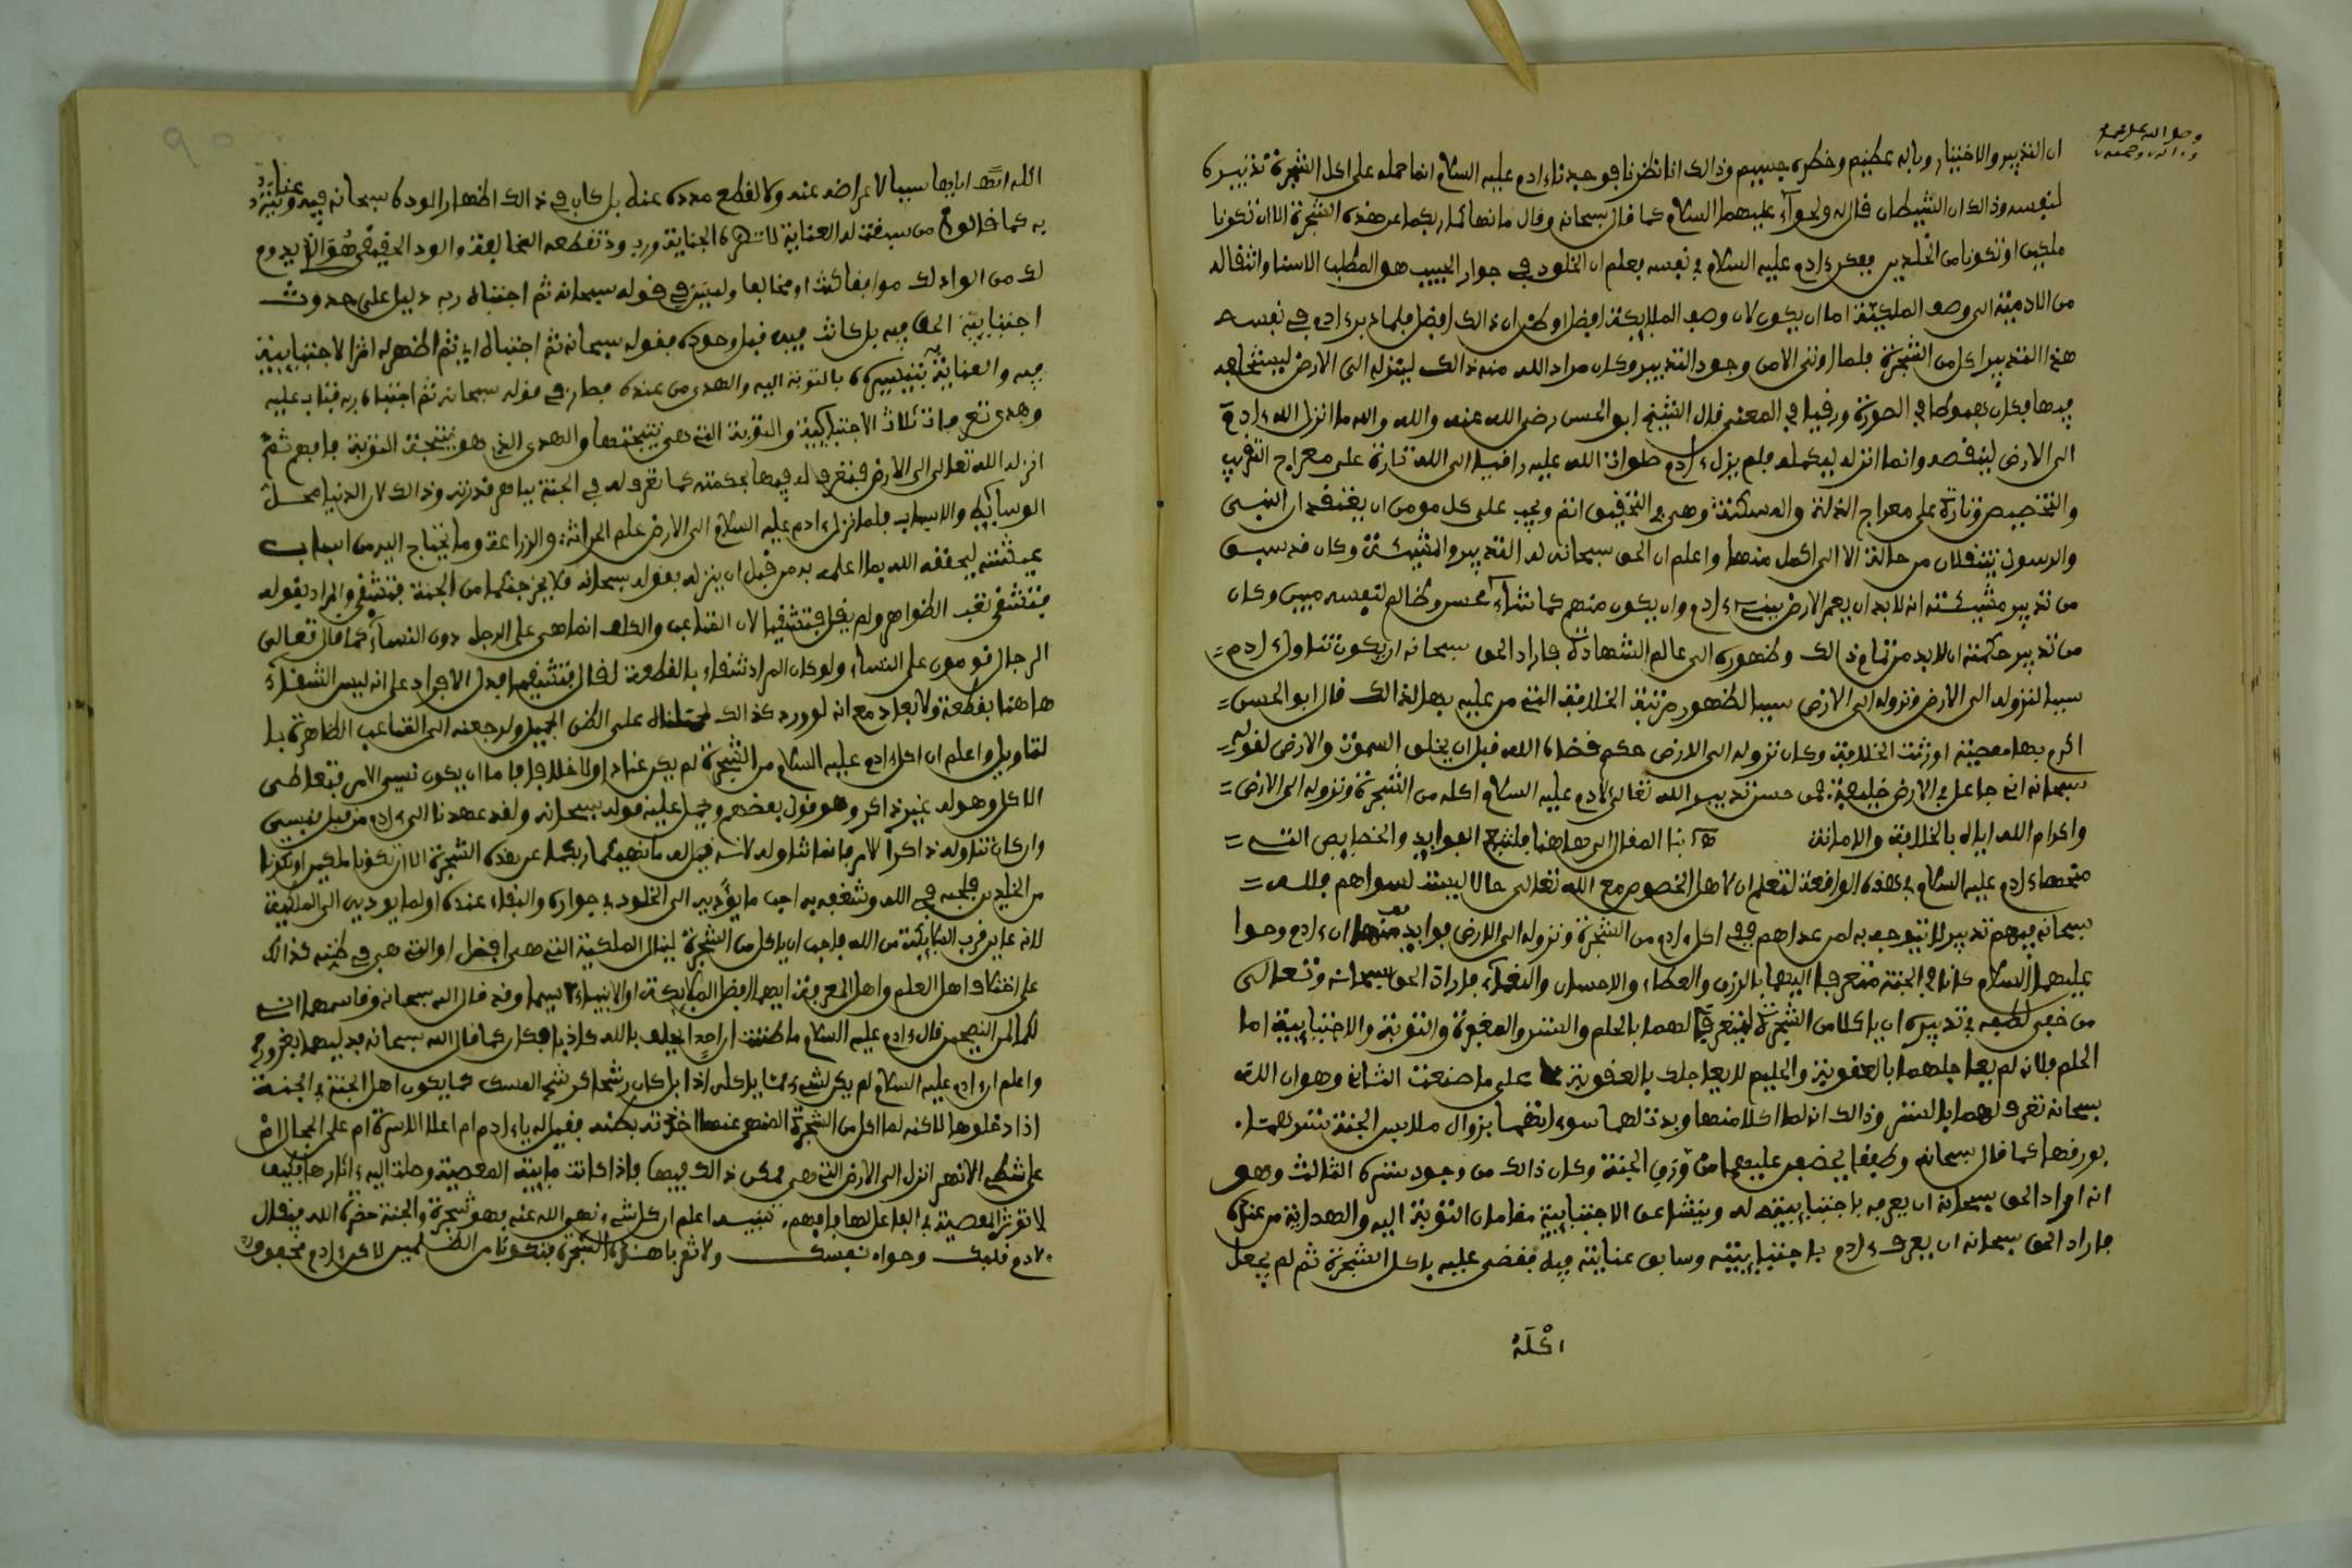 وصل الله على محمد
وءاله وصحبه
ان التدبير والاختيار وباله عظيم وخطره جسيم وذالك انا نظرنا فوجدنا ءادم عليه السلام انما حمله على اكل الشجرة تدبيره
لنفسه وذالك ان الشيطان قال له ولحوآء عليهما السلام كما قال سبحانه وقال ما نهاكما ربكما عن هذه الشجرة الا ان تكونا
ملكين او تكونا من الخلدين ففكر ءادم عليه السلام في نفسه فعلم ان الخلود في جوار الحبيب هو المطلب الاسنا وانتقاله
من الادمية الى وصف الملكية اما ان يكون لان وصف الملايكة افضل او ظن ان ذالك افضل فلما دبر ءادم في نفسه
هذا التدبير اكل من الشجرة فلما اوتي الا من وجود التدبير وكان مراد الله منه ذالك لينزله الى الارض ليستخلفه
فيها فكان هبوطا في الصورة ورقيا في المعنى قال الشيخ ابو الحسن رضي الله عنه والله والله ما انزل الله ءادم
الى الارض لينقصه وانما انزله ليكمله فلم يزل ءادم صلوات الله عليه راقيا الى الله تارة على معراج التقريب
والتخصيص وتارة على معراج الذلة والمسكنة وهي في التحقيق اتم ويجب على كل مومن ان يعتقد ان النبي
والرسول ينتقلان من حالة الا الى اكمل منها واعلم ان الحق سبحانه له التدبير والمشيئة وكان قد سبق
من تدبير مشيئته انه لا بد ان يعمر الارض ببني ءادم وان يكون منهم كما شآء محسن وظالم لنفسه مبين وكان
من تدبير حكمته ان لا بد من تمام ذالك وظهوره الى عالم الشهادة فاراد الحق سبحانه ان يكون تناول ءادم
سببا لنزوله الى الارض ونزوله الى الارض سببا لظهور مرتبة الخلافة التي من عليه بها لذالك قال ابو الحسن
اكرم بها معصية اورثت الخلافة وكان نزوله الى الارض حكم قضاه الله قبل ان يخلق السموت والارض لقوله
سبحانه اني جاعل في الارض خليفة فمن حسن تدبير الله تعالى لادم عليه السلام اكله من الشجرة ونزوله الى الارض
واكرام الله اياه بالخلافة والامانة بنا المقال الى هاهنا فلنتبع الفوايد والخصايص التي
منحها ءادم عليه السلام في هذه الواقعة لتعلم ان لاهل الخصوص مع الله تعالى حالا ليست لسواهم فلله
سبحانه فيهم تدبير لا يتوجه به لمن عداهم ففي اكل ءادم من الشجرة ونزوله الى الارض فوايد منها ان ءادم وحوا
عليهما السلام كانا في الجنة متعرفا اليهما بالرزق والعطاء والاحسان والنعمآء فاراد الحق سبحانه وتعالى
من خفي لطفه في تدبيره ان ياكلا من الشجرة ليتعرف لهما بالحلم والستر والمغفرة والتوبة والاجتبايية اما
الحلم فلانه لم يعاجلهما بالعقوبة والحليم لا يعاجلك بالعقوبة على ما صنعت الثاني وهو ان الله
سبحانه تعرف لهما بالستر وذالك انه لما اكلا منها وبدت لهما سوءاتهما بزوال ملابس الجنة سترهما
بورقها كما قال سبحانه وطفقا يخصفن عليهما من ورق الجنة وكان ذالك من وجود ستره الثالث وهو
انه اراد الحق سبحانه ان يعرفه باجتباييته له وينشا عن الاجتبايية مقامان التوبة اليه والهداية من عنده
فاراد الحق سبحانه ان يعرف ءادم باجتباييته وسابق عنايته فيه فقضى عليه باكل الشجرة ثم لم يجعل
اكله
اكله اياها سببا لاعراضه عنه ولا لقطع مدده عنه بل كان في ذالك اظهارا لوده سبحانه فيه وعنايته
به كما قالوا من سبقت له العناية لم تضره الجناية ورب ود تقطعه المخالفة والود الحقيقي هو الذي يدوم
لك من الواد لك موافقا كنت او مخالفا وليس في قوله سبحانه ثم اجتباه ربه دليل على حدوث
اجتبايية الحق فيه بل كانت فيه قبل وجوده فقوله سبحانه ثم اجتباه اي ثم اظهر له اثر الاجتبايية
فيه والعناية به بتيسيره بالتوبة اليه والهدى من عنده فصار في قوله سبحانه ثم اجتباه ربه فتاب عليه
وهدى تعرفات ثلاث الاجتبايية والتوبة التي هي نتيجتها والهدى الذي هو نتيجة التوبة فافهم ثم
انزله الله تعالى الى الارض فتعرف له فيها بحكمته كما تعرف له في الجنة بباهر قدرته وذالك لان الدنيا محل
الوسايط والاسباب فلما نزل ءادم عليه السلام الى الارض علم الحراثة والزراعة وما يحتاج اليه من اسباب
عيشته ليحققه الله بما اعلمه به من قبل ان ينزله بقوله سبحانه فلا يخرجنكما من الجنة فتشقى والمراد بقوله
فتشقى تعب الظواهر ولم يقل فتشقيا لان المتاعب والكلف انما هي على الرجل دون النسآء كما قال تعالى
الرجال قومون على النساء ولو كان المراد شقاء بالقطعة لقال فتشقيا فدل الافراد على انه ليس الشقآء
هاهنا بقطعة ولا بعاد مع انه لو ورد كذالك على الظن الجميل ولرجعنه الى المتاعب الظاهرة با
لتاويل واعلم ان اكل ءادم عليه السلام من الشجرة لم يكن عنادا ولا خلافا فاما ان يكون نسي الامر فتعاطى
الاكل وهو له غير ذاكر وهو قول بعضهم ويحمل عليه قوله سبحانه ولقد عهدنا الى ءادم من قبل فنسي
وان كان تناوله ذاكرا لامر فانما تناوله لانه قيل له ما نهيكما ربكما عن هذه الشجرة الا ان تكونا ملكين او تكونا
من الخلدين فلحبه في الله وشغفه به احب ما يوديه الى الخلود في جواره والبقاء عنده او لما يوديه الى الملكية
لانه عاين قرب الملايكة من الله فاحب ان ياكل من الشجرة لينال الملكية التي هي افضل او التي هي في ظنه كذالك
على اختلاف اهل العلم واهل المعرفة ايهما افضل الملايكة او الانبياء سيما وقد قال الله سبحانه وقاسمهما اني
لكما لمن النصحين قال ءادم عليه السلام ما ظننت ان احدا يحلف بالله كاذبا فكان كما قال الله سبحانه فدليهما بغرور
واعلم ان ءادم عليه السلام لم يكن لشيء مما ياكله اذا بل كان رشحا كرشح المسك كما يكون اهل الجنة في الجنة
اذا دخلوها لاكنه لما اكل من الشجرة المنهي عنها اخذته بطنه فقيل له يا ءادم ام اعلا الاسرة ام على الحجال ام
على شطى الانهر انزل الى الارض التي هي يمكن ذالك فيها فاذا كانت ما به المعصية وصلت اليه ءاثارها فكيف
لا توثر المعصية في الفاعل لها فافهم تنبيه اعلم ان كل شيء نهى الله عنه فهو شجرة والجنة حضرة الله فيقال
لادم قلبك وحواء نفسك ولا تقربا هذه الشجرة فتكونا من الظلمين لاكن ءادم محفوف